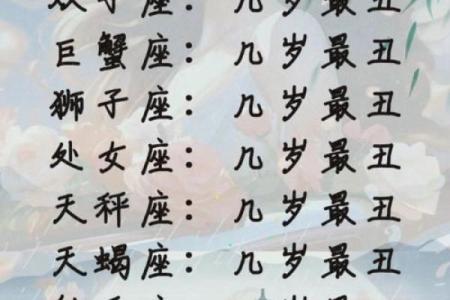 双子座：几岁最丑
巨蟹座：几岁最丑
狮子座：几岁最丑
处女座：几岁最丑
天秤座：几岁最丑
天蝎座：几岁最丑